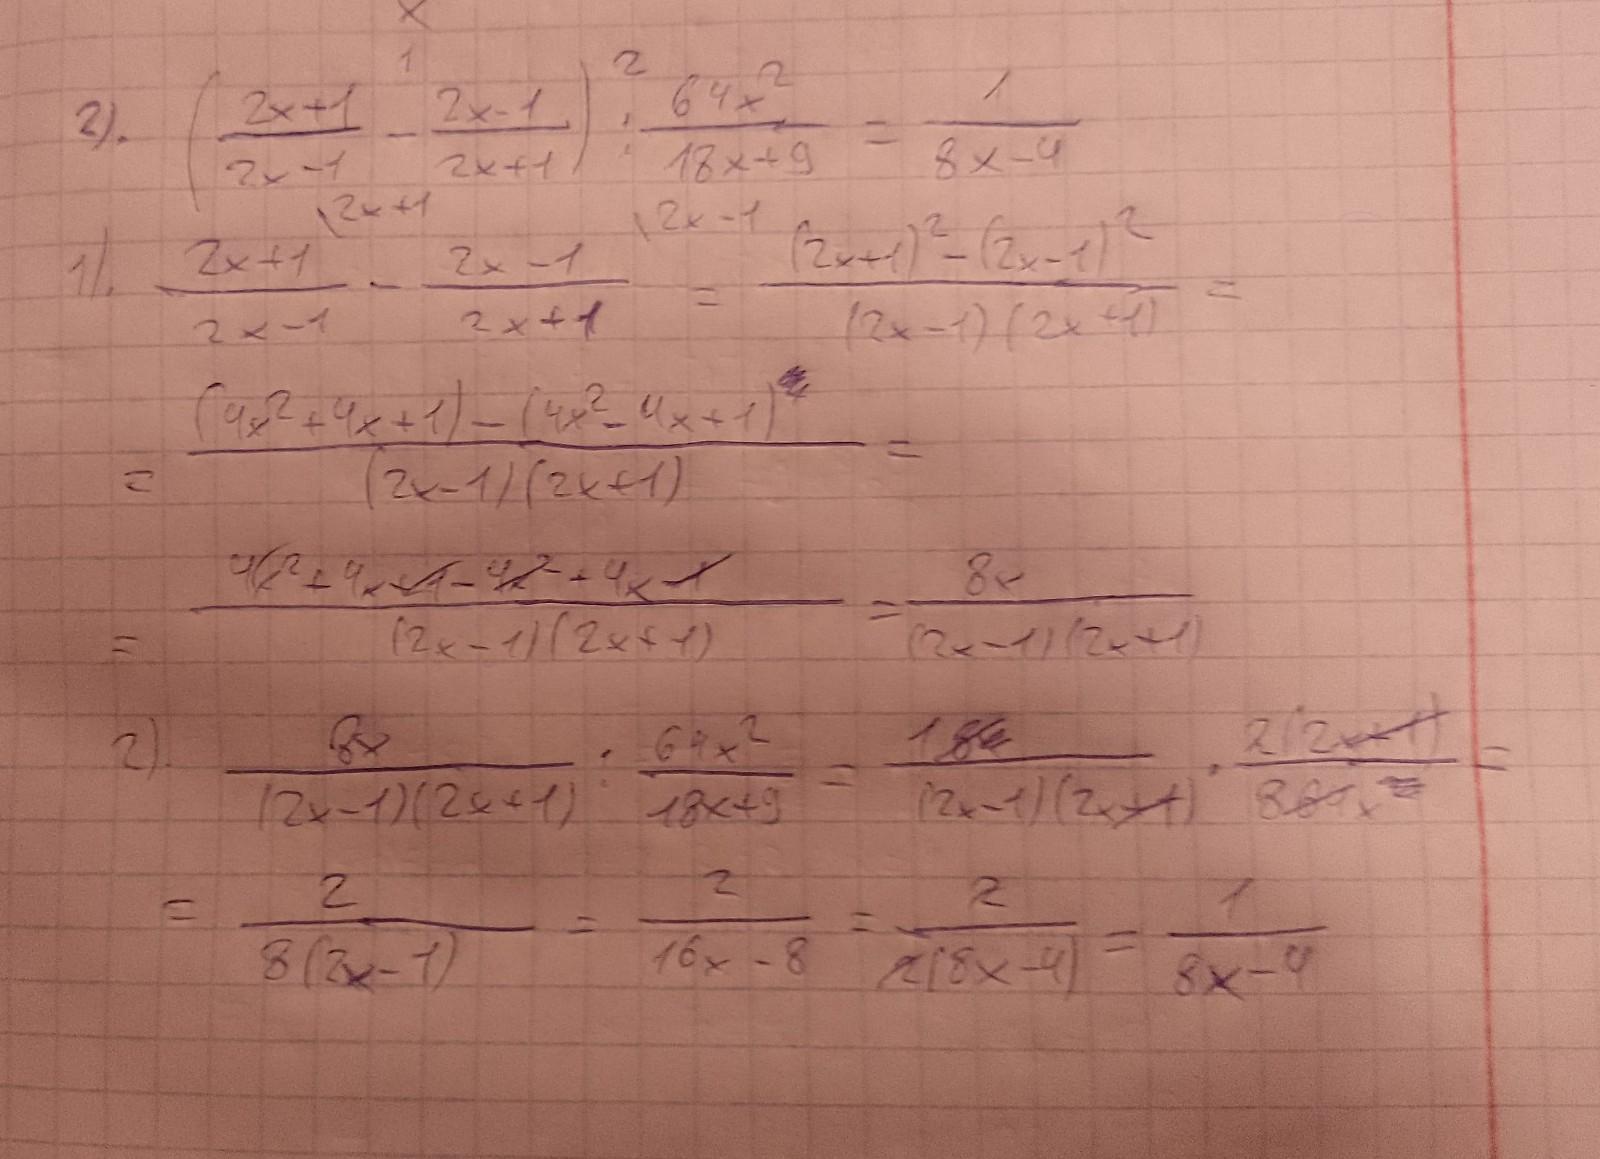 x
2). ( (2x+1)/(2x-1) - (2x-1)/(2x+1) ) : (64x²)/(18x+9) = 1/(8x-4)
1 2
\2x+1 \2x-1
1). (2x+1)/(2x-1) - (2x-1)/(2x+1) = ((2x+1)² - (2x-1)²)/((2x-1)(2x+1)) =
= ((4x²+4x+1) - (4x²-4x+1))/((2x-1)(2x+1)) =
= (4x²+4x+1-4x²+4x-1)/((2x-1)(2x+1)) = 8x/((2x-1)(2x+1))
2). 8x/((2x-1)(2x+1)) : (64x²)/(18x+9) = 1 8x/((2x-1)(2x+1)) · 2(2x+1)/(8 64x²) =
= 2/(8(2x-1)) = 2/(16x-8) = 2/(2(8x-4)) = 1/(8x-4)